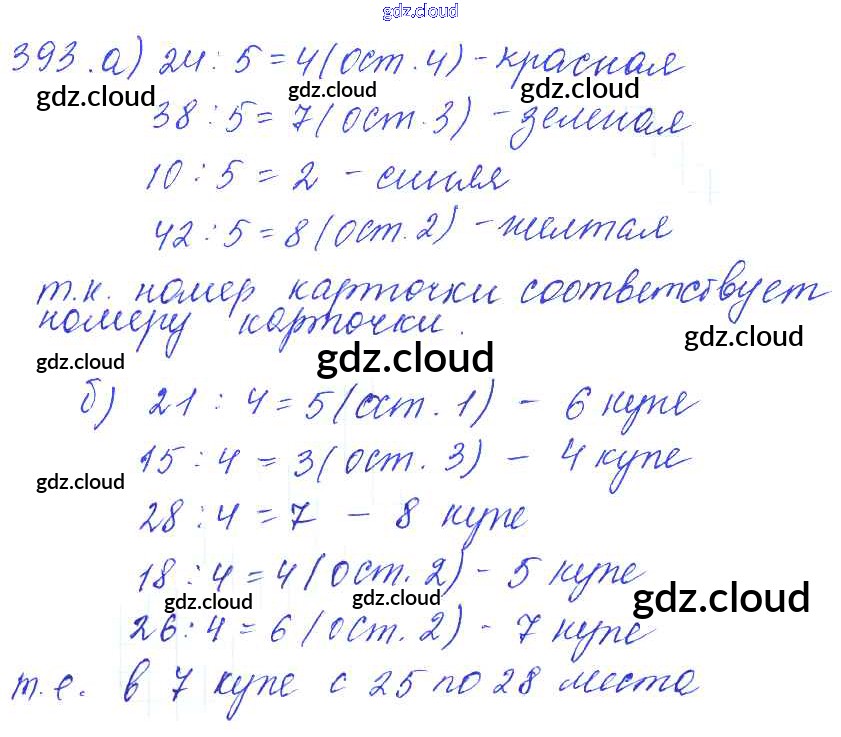 gdz.cloud
393. а) 24 : 5 = 4 (ост. 4) - красная
gdz.cloud gdz.cloud gdz.cloud
38 : 5 = 7 (ост. 3) - зеленая
10 : 5 = 2 - синяя
42 : 5 = 8 (ост. 2) - желтая
т.к. номер карточки соответствует
номеру карточки.
gdz.cloud gdz.cloud gdz.cloud
б) 21 : 4 = 5 (ост. 1) - 6 купе
15 : 4 = 3 (ост. 3) - 4 купе
gdz.cloud
28 : 4 = 7 - 8 купе
18 : 4 = 4 (ост. 2) - 5 купе
gdz.cloud gdz.cloud gdz.cloud
26 : 4 = 6 (ост. 2) - 7 купе
т.е. в 7 купе с 25 по 28 места